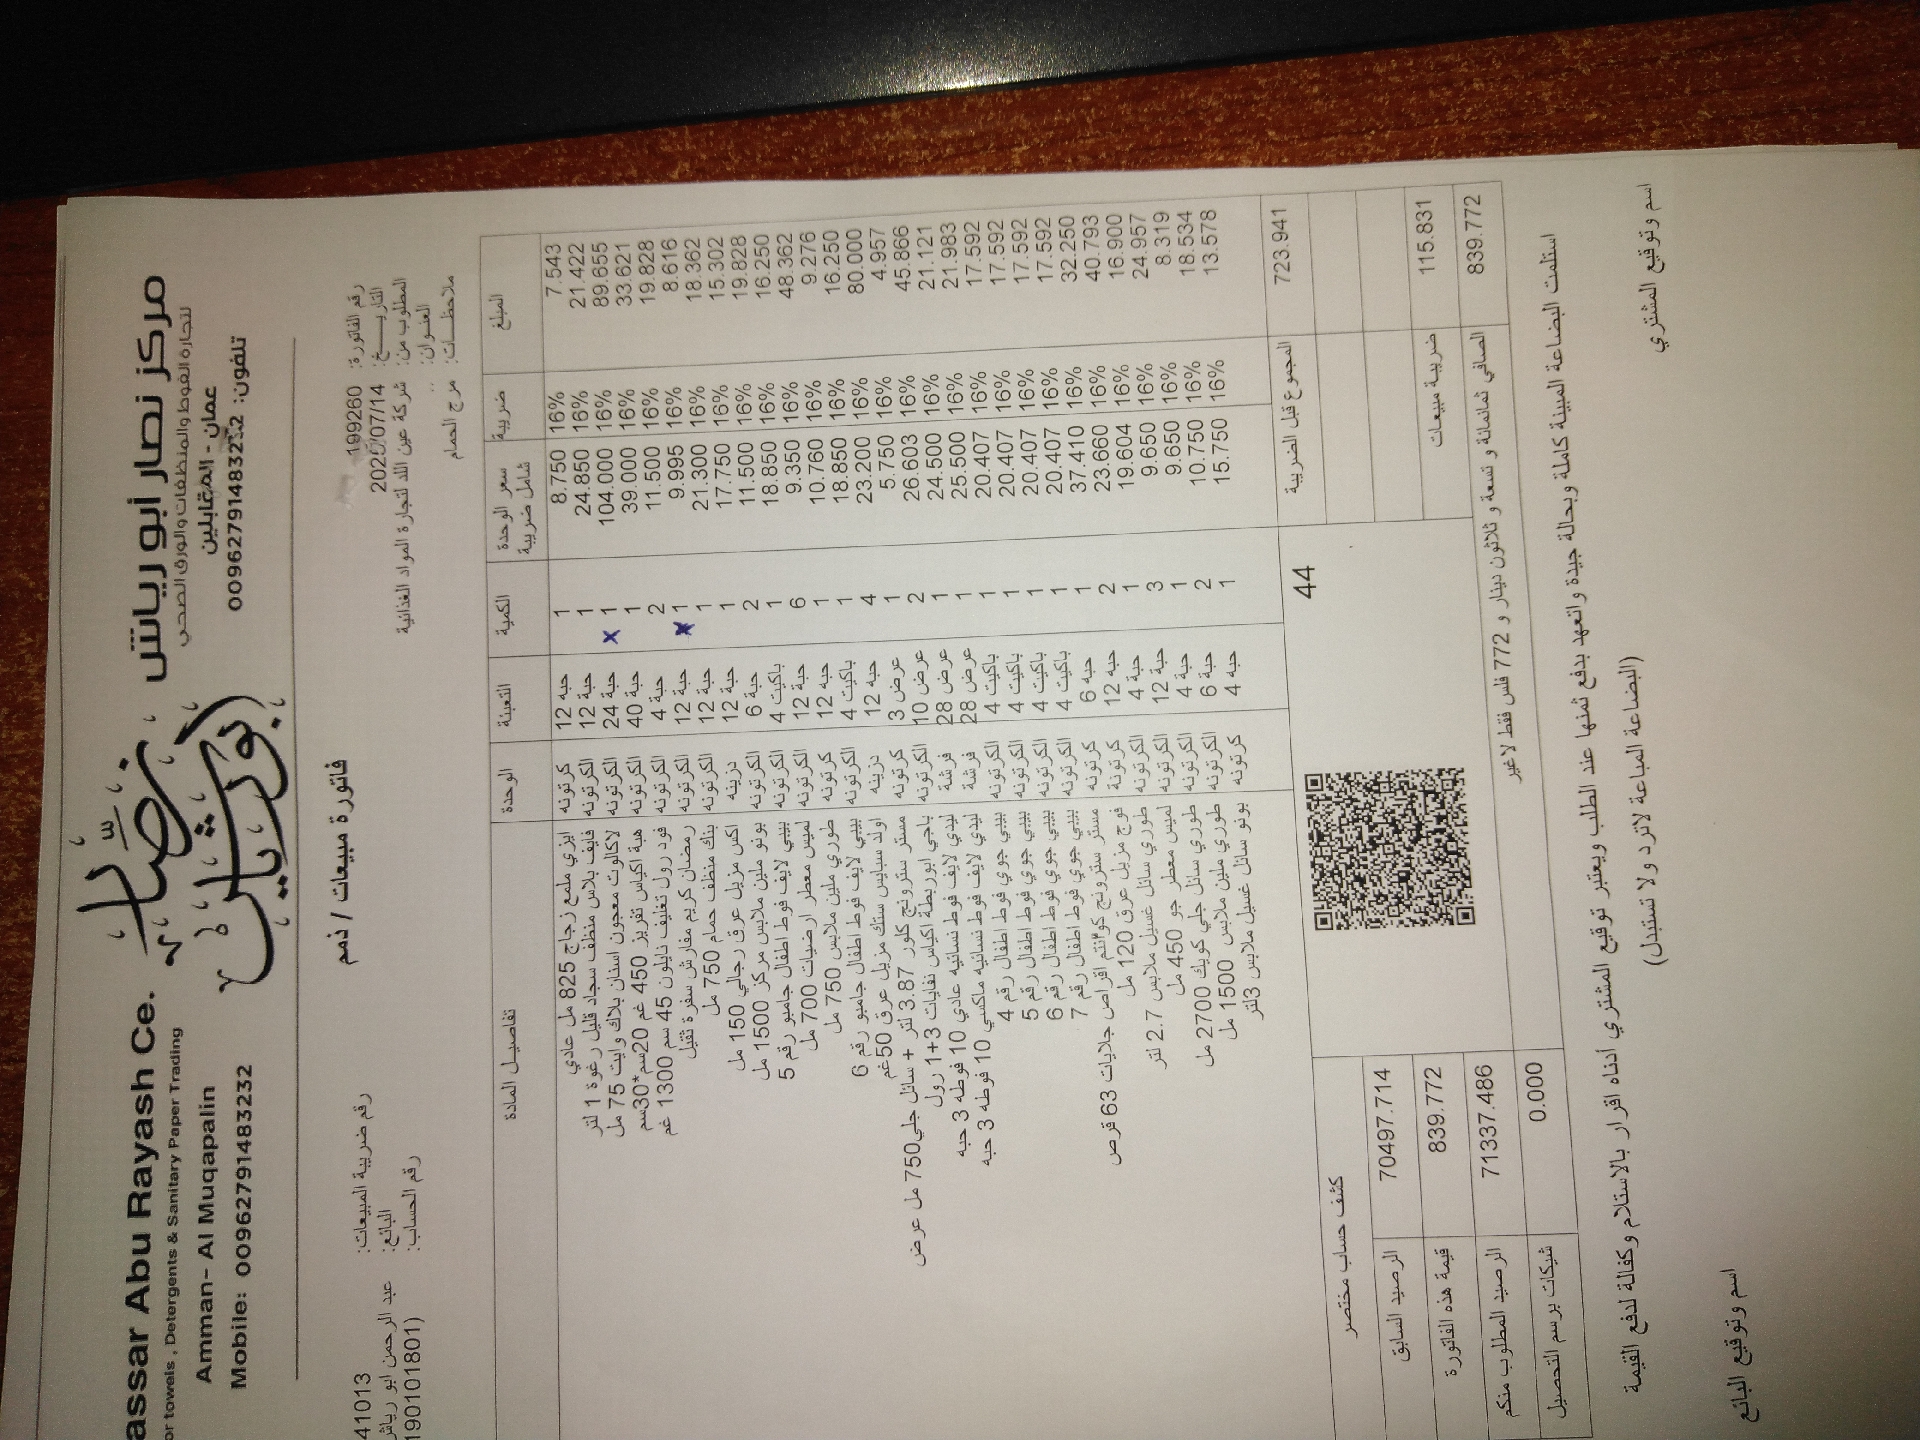 مركز نصار أبو رياش
لتجارة الفوط والمنظفات والورق الصحي
عمان - المقابلين
تلفون: 00962791483232
نصار
أبو رياش
assar Abu Rayash Ce.
or towels , Detergents & Sanitary Paper Trading
Amman- Al Muqapalin
Mobile: 00962791483232
فاتورة مبيعات / ذمم
رقم الفاتورة: 199260
التاريـــــخ: 2025/07/14
المطلوب من: شركة عين اللد لتجارة المواد الغذائية
العنـــوان:
ملاحظـــات: مرج الحمام
رقم ضريبة المبيعات: 41013
البائع: عبد الرحمن ابو رياش
رقم الحساب: 190101801)
المبلغ ضريبة سعر الوحدة شامل ضريبة الكمية التعبئة الوحدة تفاصيـــل المادة
7.543 16% 8.750 1 12 حبه كرتونه ايزي ملمع زجاج 825 مل عادي
21.422 16% 24.850 1 12 حبة الكرتونه فايف بلاس منظف سجاد قليل رغوة 1 لتر
89.655 16% 104.000 1 x 24 حبة الكرتونه لاكالوت معجون اسنان بلاك وايت 75 مل
33.621 16% 39.000 1 40 حبة الكرتونه هبة اكياس تفريز 450 غم 20سم*30سم
19.828 16% 11.500 2 4 حبة الكرتونه فورد رول تغليف نايلون 45 سم 1300 غم
8.616 16% 9.995 1 x 12 حبة الكرتونه رمضان كريم مفارش سفرة ثقيل
18.362 16% 21.300 1 12 حبة الكرتونه بنك منظف حمام 750 مل
15.302 16% 17.750 1 12 حبة دزينه اكس مزيل عرق رجالي 150 مل
19.828 16% 11.500 2 6 حبة الكرتونه بونو ملين ملابس مركز 1500 مل
16.250 16% 18.850 1 4 باكيت الكرتونه بيبي لايف فوط اطفال جامبو رقم 5
48.362 16% 9.350 6 12 حبة الكرتونه لميس معطر ارضيات 700 مل
9.276 16% 10.760 1 12 حبه كرتونة طوري ملين ملابس 750 مل
16.250 16% 18.850 1 4 باكيت الكرتونه بيبي لايف فوط اطفال جامبو رقم 6
80.000 16% 23.200 4 12 حبه دزينه اولد سبايس ستك مزيل عرق 50غم
4.957 16% 5.750 1 3 عرض كرتونه مستر سترونج كلور 3.87 لتر + سائل جلي750 مل عرض
45.866 16% 26.603 2 10 عرض الكرتونه باجي ابوربطة اكياس نفايات 3+1 رول
21.121 16% 24.500 1 28 عرض فرشة ليدي لايف فوط نسائيه عادي 10 فوطه 3 حبه
21.983 16% 25.500 1 28 عرض فرشة ليدي لايف فوط نسائيه ماكسي 10 فوطه 3 حبه
17.592 16% 20.407 1 4 باكيت الكرتونه بيبي جوي فوط اطفال رقم 4
17.592 16% 20.407 1 4 باكيت الكرتونه بيبي جوي فوط اطفال رقم 5
17.592 16% 20.407 1 4 باكيت الكرتونه بيبي جوي فوط اطفال رقم 6
17.592 16% 20.407 1 4 باكيت الكرتونه بيبي جوي فوط اطفال رقم 7
32.250 16% 37.410 1 6 حبه كرتونه مستر سترونج اقراص جلايات 63 قرص
40.793 16% 23.660 2 12 حبه كرتونة فوج مزيل عرق 120 مل
16.900 16% 19.604 1 4 حبة الكرتونه طوري سائل غسيل ملابس 2.7 لتر
24.957 16% 9.650 3 12 حبة الكرتونه لميس معطر جو 450 مل
8.319 16% 9.650 1 4 حبة الكرتونه طوري سائل جلي كويك 2700 مل
18.534 16% 10.750 2 6 حبة الكرتونه طوري ملين ملابس 1500 مل
13.578 16% 15.750 1 4 حبه كرتونه بونو سائل غسيل ملابس 3لتر
723.941 المجموع قبل الضريبة 44
115.831 ضريبة مبيعات
839.772 الصافي ثمانمائة و تسعة و ثلاثون دينار و 772 فلس فقط لاغير
كشف حساب مختصر
الرصيد السابق 70497.714
قيمة هذه الفاتورة 839.772
الرصيد المطلوب منكم 71337.486
شيكات برسم التحصيل 0.000
استلمت البضاعة المبينة كاملة وبحالة جيدة واتعهد بدفع ثمنها عند الطلب ويعتبر توقيع المشتري أدناه اقرار بالاستلام وكفالة لدفع القيمة
(البضاعة المباعة لاترد ولا تستبدل)
اسم وتوقيع المشتري
اسم وتوقيع البائع